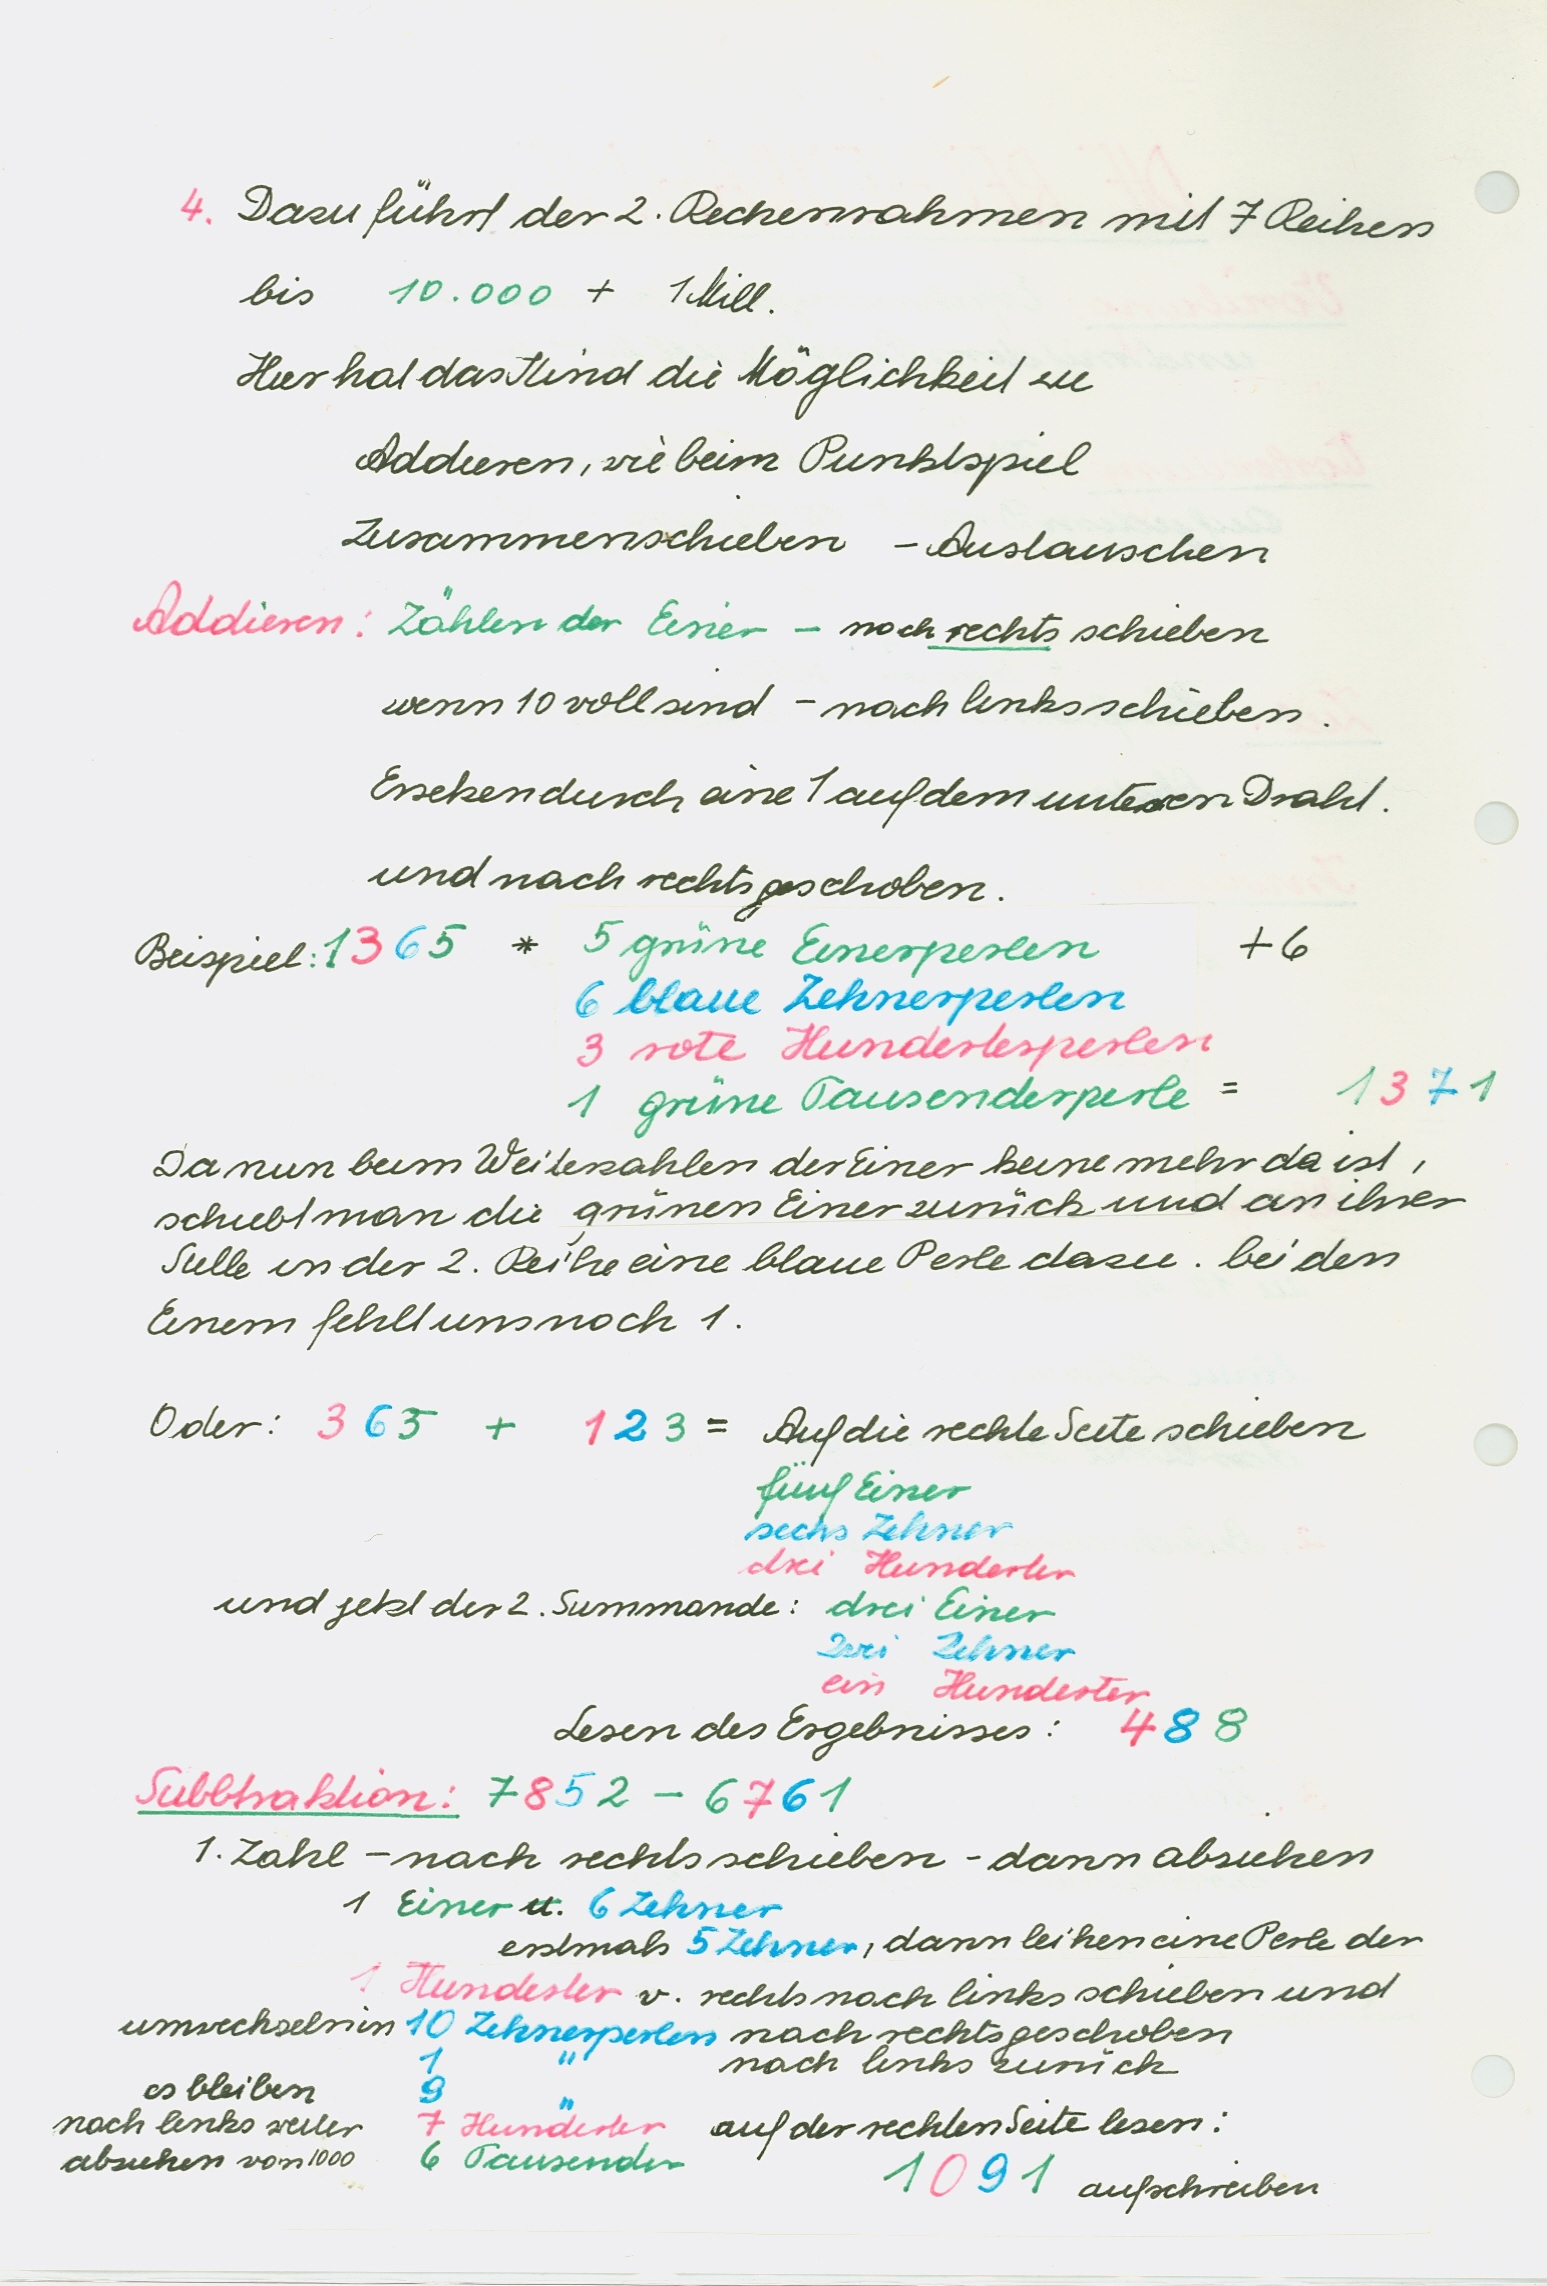 4. Dazu führt der 2. Rechenrahmen mit 7 Reihen
bis 10.000 + 1 Mill.
Hier hat das Kind die Möglichkeit zu
Addieren, wie beim Punktspiel
Zusammenschieben – Austauschen
Addieren: Zählen der Einer – nach rechts schieben
wenn 10 voll sind – nach links schieben.
Ersetzen durch eine 1 auf dem unteren Draht.
und nach rechts geschoben.
Beispiel: 1365 * 5 grüne Einerperlen +6
6 blaue Zehnerperlen
3 rote Hunderterperlen
1 grüne Tausenderperle = 1371
Da nun beim Weiterzahlen der Einer keine mehr da ist,
schiebt man die grünen Einer zurück und an ihrer
Stelle in der 2. Reihe eine blaue Perle dazu. bei den
Einern fehlt uns noch 1.
Oder: 365 + 123 = Auf die rechte Seite schieben
fünf Einer
sechs Zehner
drei Hunderter
und jetzt der 2. Summande: drei Einer
zwei Zehner
ein Hunderter
Lesen des Ergebnisses: 488
Subbtraktion: 7852 – 6761
1. Zahl – nach rechts schieben – dann abziehen
1 Einer u. 6 Zehner
erstmals 5 Zehner, dann leihen eine Perle der
1 Hunderter v. rechts nach links schieben und
umwechseln in 10 Zehnerperlen nach rechts geschoben
1 " nach links zurück
es bleiben 9 "
nach links weiter 7 Hunderter auf der rechten Seite lesen:
abziehen von 1000 6 Tausender 1091 aufschreiben